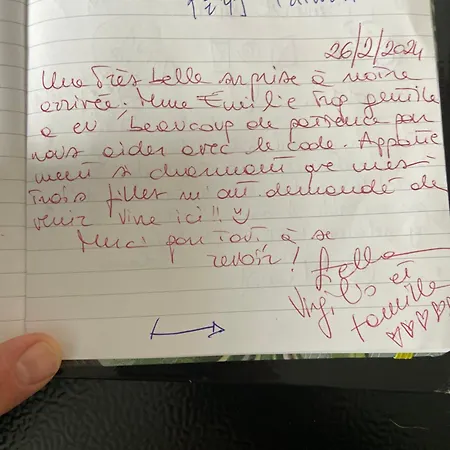 26/2/2024
Une très belle surprise à notre
arrivée. Mme Emilie trop gentille
a eu beaucoup de patience pour
nous aider avec le code. Apparte
ment si charmant que mes
trois filles m'ont demandé de
venir vivre ici!!
Merci pour tout, à se
revoir!
Virgilio et
famille